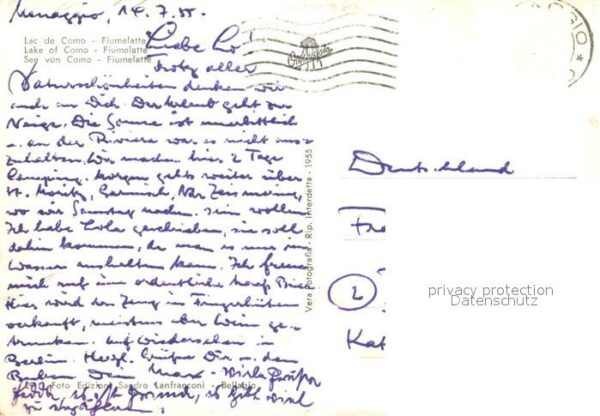 Menaggio, 14.7.55.
Lac de Como - Fiumelatte
Lake of Como - Fiumelatte
See von Como - Fiumelatte
Liebe Lo!
Trotz aller
Naturschönheiten denken wir
auch an Dich. Der Urlaub geht zur
Neige. Die Sonne ist unerbittlich
u. an der Riviera war es nicht aus-
zuhalten. Wir machen hier 2 Tage
Camping. Morgen gehts weiter über
St. Moritz, Garmisch,
wo wir Sonntag sein wollen.
Ich habe Lola geschrieben, sie soll
dahin kommen, da man es nur im
Wasser aushalten kann. Ich freue
mich auf eine ordentliche
Hier wird das Zeug in Fingerhüten
verkauft, meistens aber Wein ge-
trunken. Auf Wiedersehen in
Berlin. Herzl. Grüße Dir u. den
Dein Max - Viele Grüße
Foto Edizioni Sandro Lanfranconi - Bellagio
es gibt viel
zu erzählen!
Vera Fotografia - Rip. Interdetta - 1955
Deutschland
Fra
2
Kat
privacy protection
Datenschutz